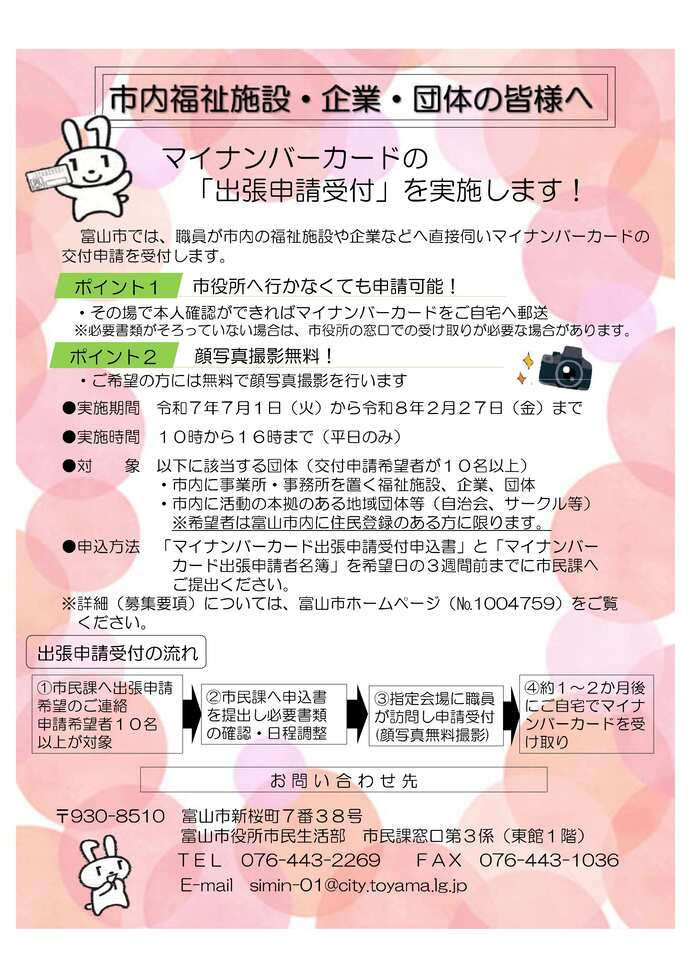 市内福祉施設・企業・団体の皆様へ
マイナンバーカードの
「出張申請受付」を実施します！
富山市では、職員が市内の福祉施設や企業などへ直接伺いマイナンバーカードの
交付申請を受付します。
ポイント１　市役所へ行かなくても申請可能！
・その場で本人確認ができればマイナンバーカードをご自宅へ郵送
※必要書類がそろっていない場合は、市役所の窓口での受け取りが必要な場合があります。
ポイント２　顔写真撮影無料！
・ご希望の方には無料で顔写真撮影を行います
●実施期間　令和７年７月１日（火）から令和８年２月２７日（金）まで
●実施時間　１０時から１６時まで（平日のみ）
●対　　象　以下に該当する団体（交付申請希望者が１０名以上）
・市内に事業所・事務所を置く福祉施設、企業、団体
・市内に活動の本拠のある地域団体等（自治会、サークル等）
※希望者は富山市内に住民登録のある方に限ります。
●申込方法　「マイナンバーカード出張申請受付申込書」と「マイナンバー
カード出張申請者名簿」を希望日の３週間前までに市民課へ
ご提出ください。
※詳細（募集要項）については、富山市ホームページ（№1004759）をご覧
ください。
出張申請受付の流れ
①市民課へ出張申請
希望のご連絡
申請希望者１０名
以上が対象
②市民課へ申込書
を提出し必要書類
の確認・日程調整
③指定会場に職員
が訪問し申請受付
(顔写真無料撮影)
④約１～２か月後
にご自宅でマイナ
ンバーカードを受
け取り
お問い合わせ先
〒930-8510　富山市新桜町７番３８号
富山市役所市民生活部　市民課窓口第３係（東館１階）
ＴＥＬ　076-443-2269　　ＦＡＸ　076-443-1036
E-mail　simin-01@city.toyama.lg.jp